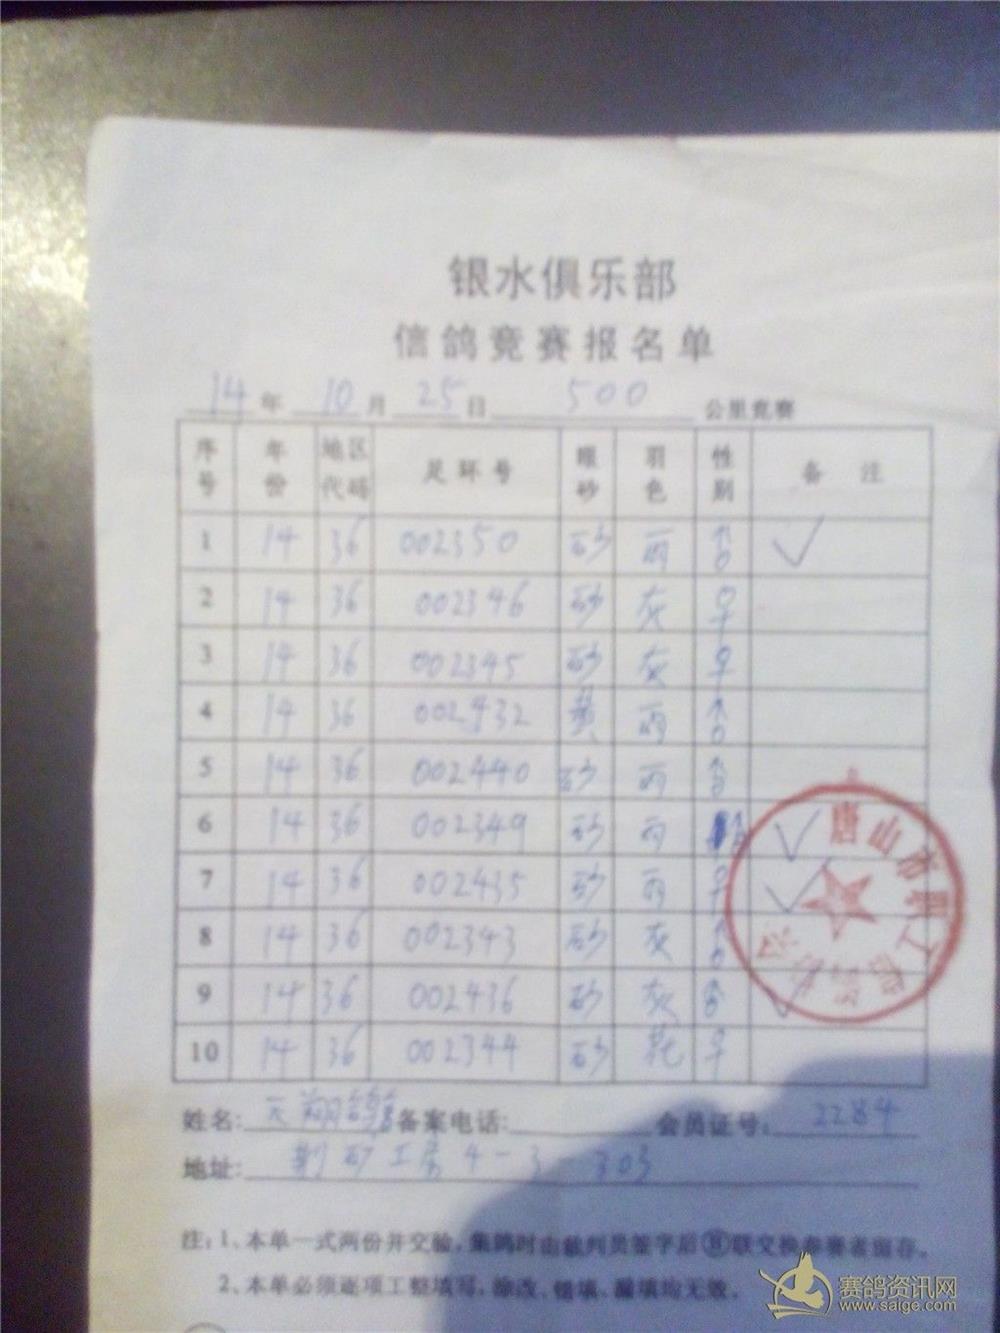 银水俱乐部
信鸽竞赛报名单
14年10月25日 500 公里竞赛
序号 年份 地区代码 足环号 眼砂 羽色 性别 备注
1 14 36 002350 砂 雨 ♂ ✓
2 14 36 002346 砂 灰 ♀
3 14 36 002345 砂 灰 ♀
4 14 36 002432 黄 雨 ♂
5 14 36 002440 砂 雨 ♂
6 14 36 002349 砂 雨 ✓
7 14 36 002435 砂 雨 ♀ ✓
8 14 36 002343 砂 灰 ♂
9 14 36 002436 砂 灰 ♂ ✓
10 14 36 002344 砂 花 ♀
唐山市职工信鸽
姓名: 天翔鸽 备案电话: 会员证号: 2284
地址: 工房 4-3-303
注: 1、本单一式两份并交验，集鸽时由裁判员签字后 联交换参赛者留存。
2、本单必须逐项工整填写，涂改、错填、漏填均无效。
赛鸽资讯网
www.saige.com